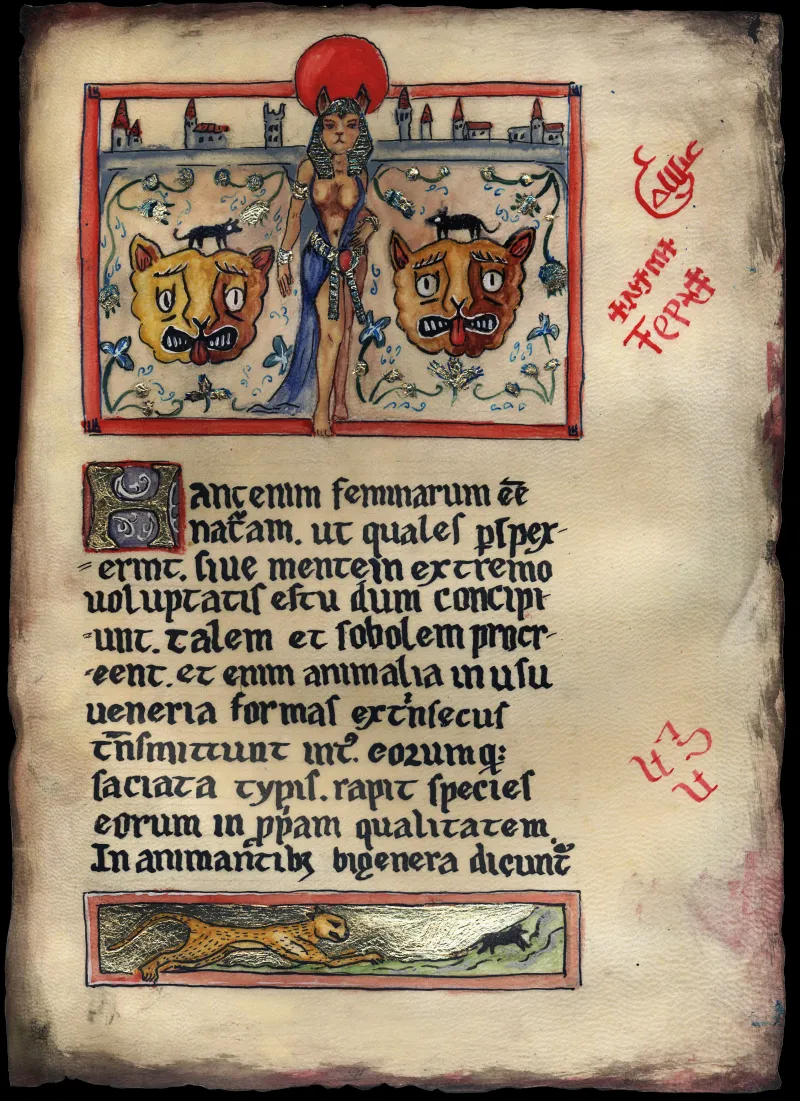 Hanc enim feminarum eē
nat̄am. ut quales ꝑspex-
-erint. siue mentem extremo
uoluptatis estu dum concipi
-unt. talem et sobolem procr-
-eent. et enim animalia in usu
ueneria formas ext'nsecus
t̄nsmittunt int'. eorumq:
saciata typis. rapit species
eorum in pp̄am qualitatem.
In animantibꝫ bigenera dicunt̄